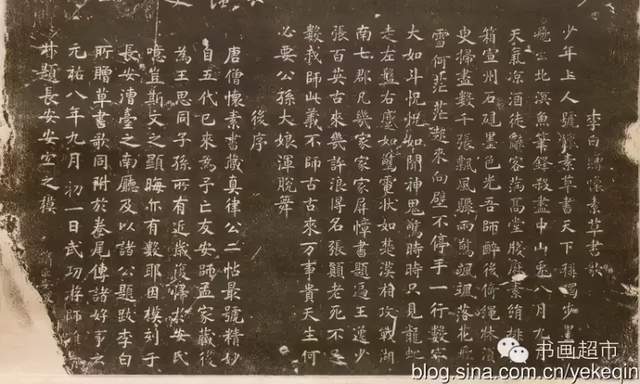 李白贈懷素草書歌
少年上人號懷素草書天下稱獨步墨
出北溟魚筆鋒殺盡中山兔八月九
天氣涼酒徒辭客滿高堂牋麻素絹排
箱宣州石硯墨色光吾師醉後倚繩牀須
臾掃盡數千張飄風驟雨驚颯颯落花飛
雪何茫茫起來向壁不停手一行數字
大如斗怳怳如聞神鬼驚時時只見龍蛇
走左盤右蹙如驚電狀如楚漢相攻戰湖
南七郡凡幾家家家屏障書題遍王逸少
張伯英古來幾許浪得名張顛老死不足
數我師此義不師古古來万事貴天生何
必要公孫大娘渾脫舞
後序
唐僧懷素書藏真律公二帖最號精妙
自五代已來為予亡友安師孟家藏後
為王思同子孫所有近歲復歸安氏
噫豈斯文之顯晦亦有數耶因模刻于
長安漕臺之南廳及以諸公題跋李白
所贈草書歌同附於卷尾傳諸好事云
元祐八年九月初一日武功游師雄景
題長安安之模
书画超市
blog.sina.com.cn/yekeqin